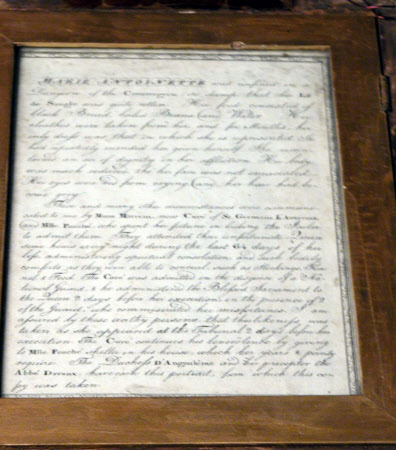 MARIE ANTOINETTE was confined in a
Dungeon of the Conciergerie so damp that her Lit
de Sangle was quite rotten. Her food consisted of
black Bread, boiled Beans and Water. Her
cloathes were taken from her and for Months, her
only dress was that in which she is represented. She
had repeatedly mended her gown herself. She
an air of dignity in her affliction. Her body
was much reduced. Her face was not emaciated.
Her eyes were red from crying and her hair had be-
come grey.
These and many other circumstances were commun-
icated to me by Mons Curé of St Germain L'Auxerrois,
and Mlle Fouché, who spent her fortune in bribing the Jailer
to admit them. They attended their unfortunate Queen
some hours every night during the last 64 days of her
life administering spiritual consolation, and such bodily
comforts as they were able to conceal such as
The Curé was admitted in the disguise of a Na-
tional Guard, & he administered the Blessed Sacrament to
the Queen 2 days before her execution in the presence of 2
of the Guard, who commiserated her misfortunes. I am
assured by these worthy persons that this likeness was
taken as she appeared at the Tribunal 2 days before her
execution. The Curé continues his benevolence by giving
to Mlle Fouché shelter in his house, which her years & poverty
require. The Duchess D'Angoulême and her preceptor the
Abbé have each this portrait, from which this co-
py was taken.